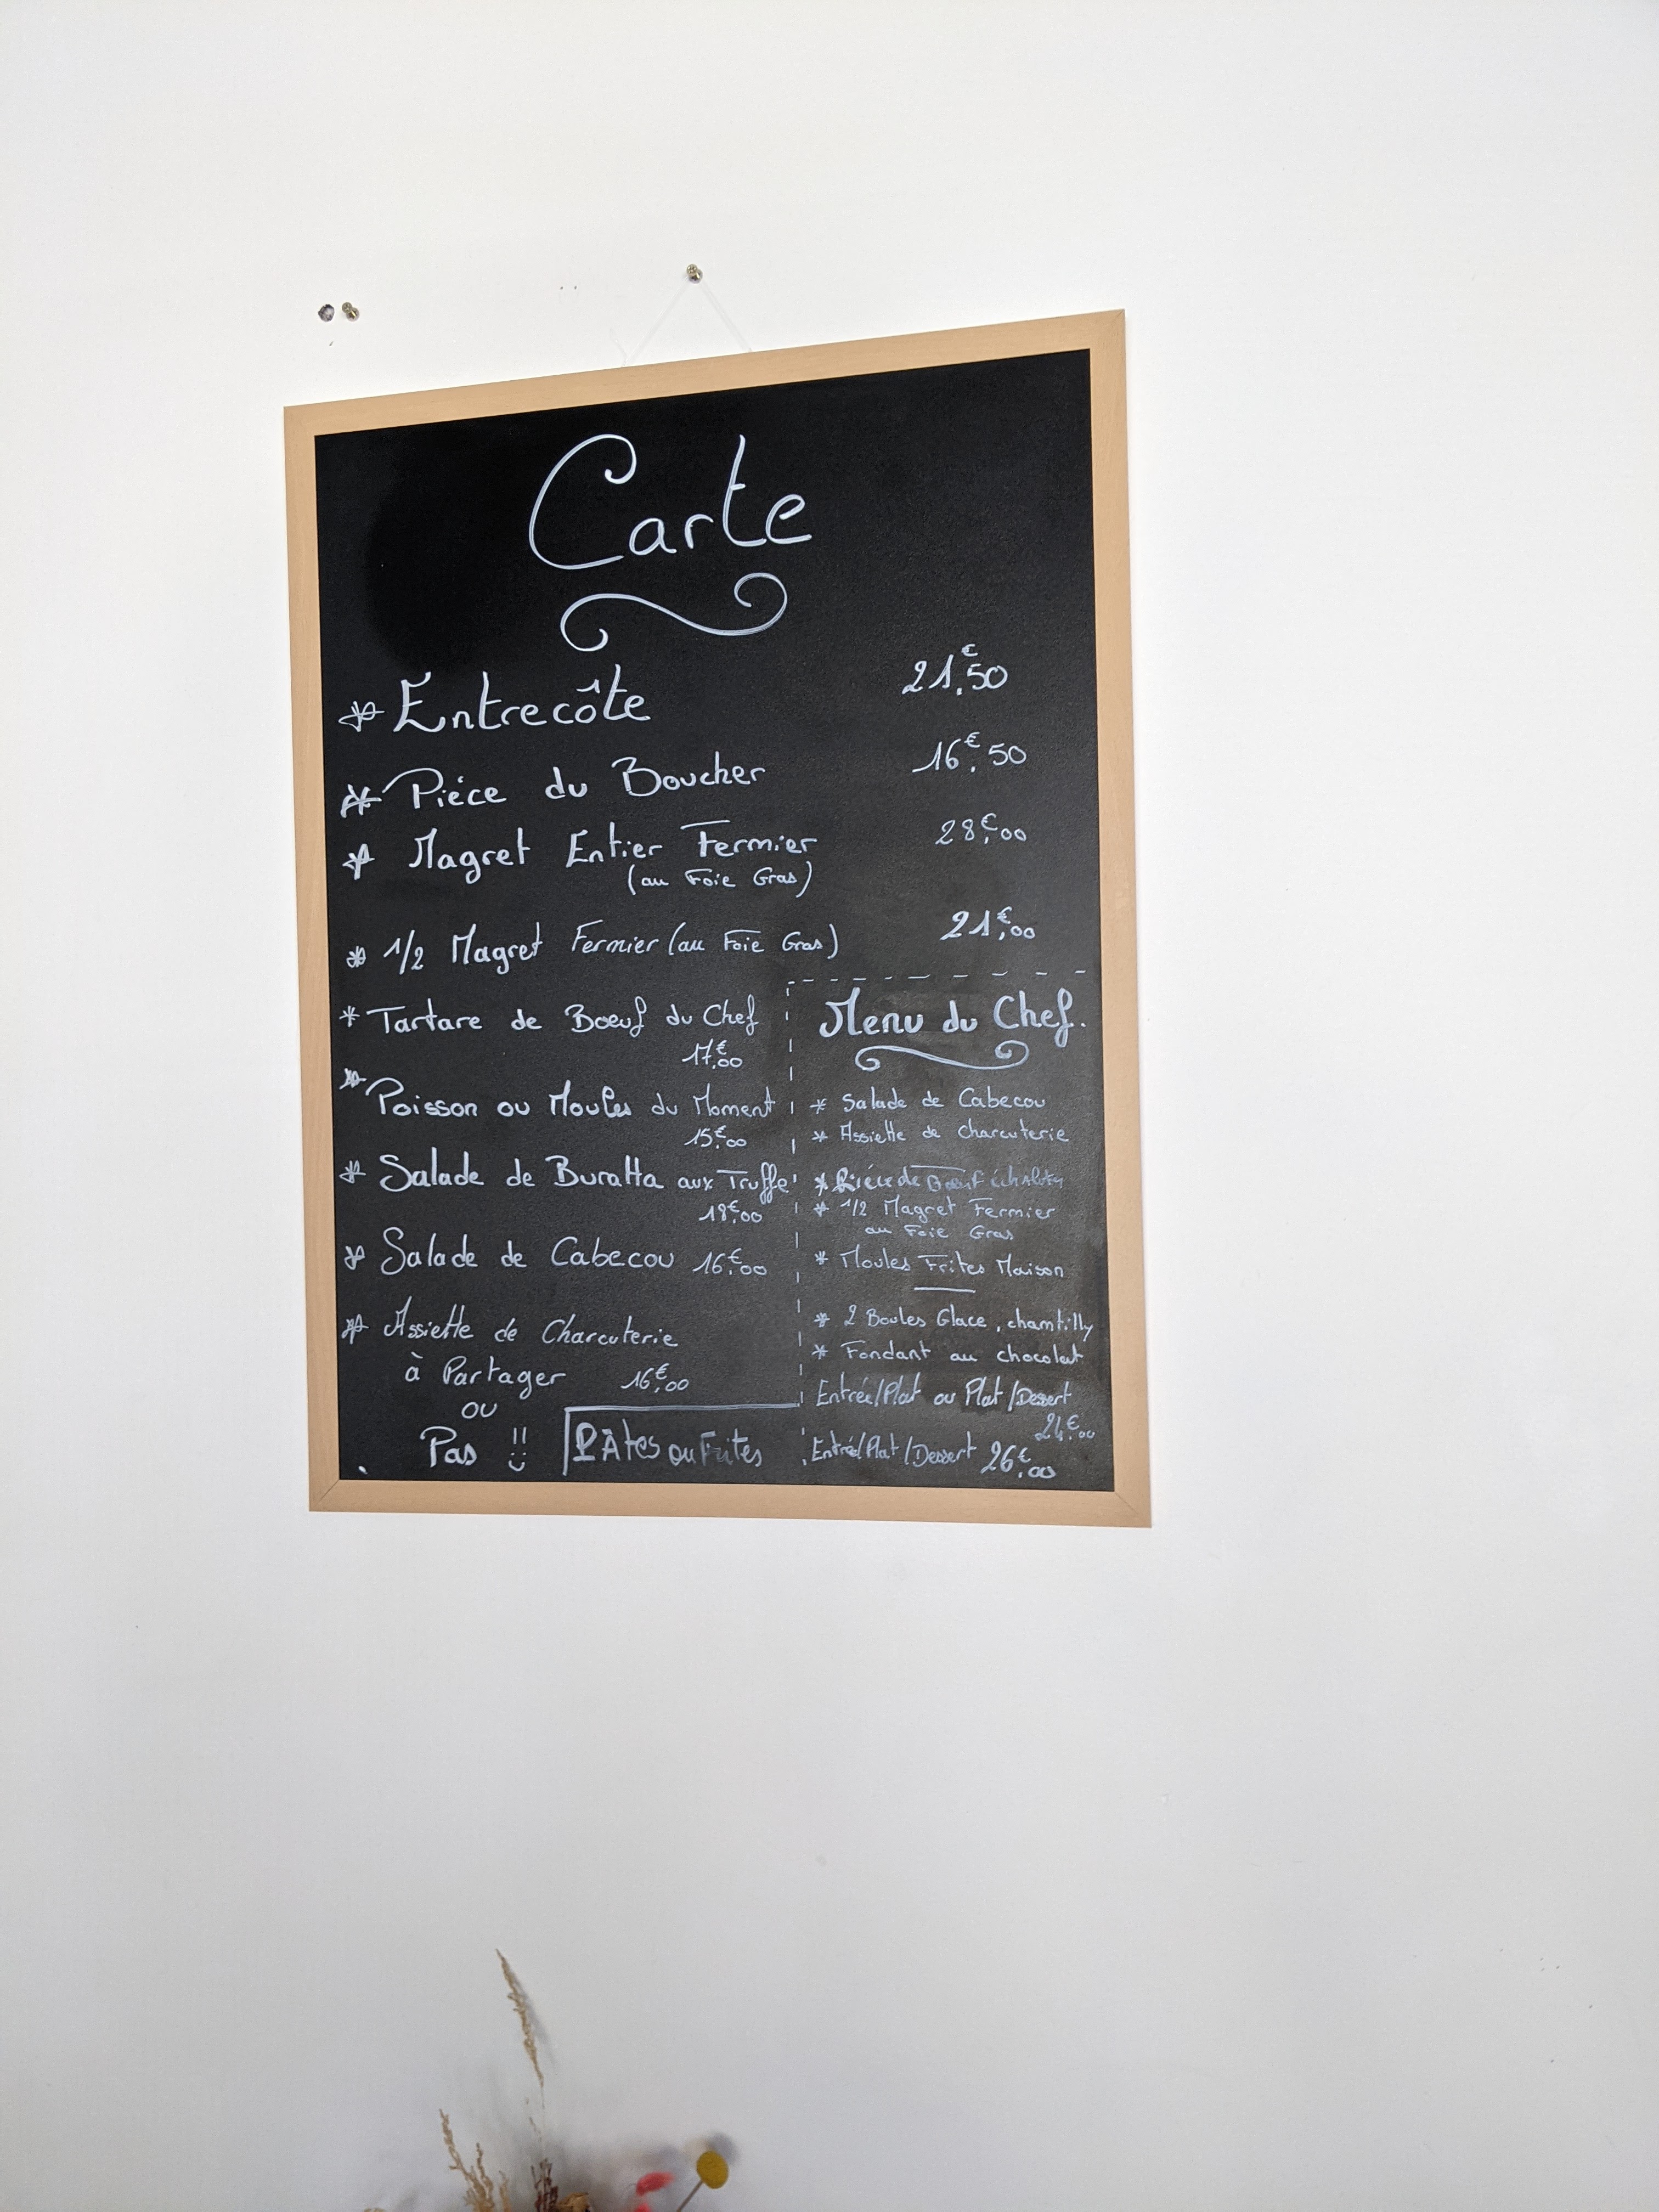 Carte
* Entrecôte 21,€50
* Piéce du Boucher 16,€50
* Magret Entier Fermier 28,€00
(au Foie Gras)
* 1/2 Magret Fermier (au Foie Gras) 21,€00
* Tartare de Boeuf du Chef
17,€00
* Poisson ou Moules du Moment
15,€00
* Salade de Buratta aux Truffe
18,€00
* Salade de Cabecou 16,€00
* Assiette de Charcuterie
à Partager 16,€00
ou
Pas !!
PÂtes ou Frites
Menu du Chef.
* Salade de Cabecou
* Assiette de Charcuterie
* Piéce de Boeuf
* 1/2 Magret Fermier
au Foie Gras
* Moules Frites Maison
* 2 Boules Glace, chantilly
* Fondant au chocolat
Entrée/Plat ou Plat/Dessert
€00
Entrée/Plat/Dessert 26,€00